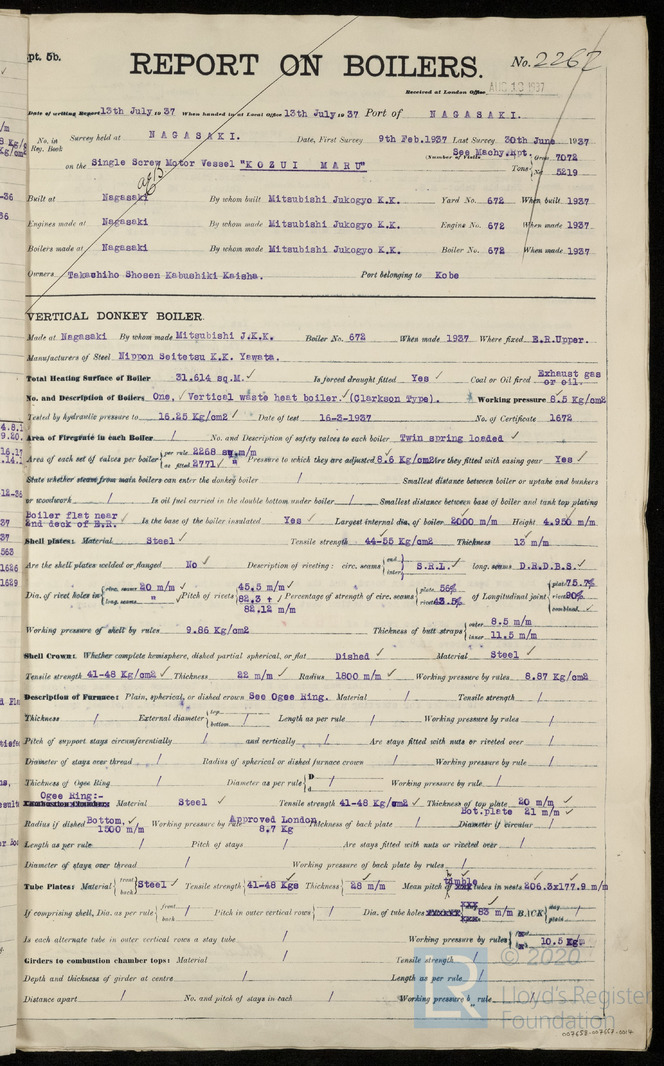 pt. 5b.
REPORT ON BOILERS.
No. 2267
Received at London Office AUG 13 1937
Date of writing Report 13th July, 19 37 When handed in at Local Office 13th July, 19 37 Port of NAGASAKI.
No. in Reg. Book Survey held at NAGASAKI. Date, First Survey 9th Feb. 1937 Last Survey 30th June 1937
(Number of Visits See Machy.Rpt.
on the Single Screw Motor Vessel "KOZUI MARU" Tons { Gross 7072 Net 5219
Built at Nagasaki By whom built Mitsubishi Jukogyo K.K. Yard No. 672 When built 1937
Engines made at Nagasaki By whom made Mitsubishi Jukogyo K.K. Engine No. 672 When made 1937
Boilers made at Nagasaki By whom made Mitsubishi Jukogyo K.K. Boiler No. 672 When made 1937
Owners Takachiho Shosen Kabushiki Kaisha. Port belonging to Kobe
VERTICAL DONKEY BOILER.
Made at Nagasaki By whom made Mitsubishi J.K.K. Boiler No. 672 When made 1937 Where fixed E.R.Upper.
Manufacturers of Steel Nippon Seitetsu K.K. Yawata.
Total Heating Surface of Boiler 31.614 sq.M. ✓ Is forced draught fitted Yes ✓ Coal or Oil fired Exhaust gas or oil.
No. and Description of Boilers One, ✓ Vertical waste heat boiler. ✓ (Clarkson Type). Working pressure 8.5 Kg/cm2
Tested by hydraulic pressure to 16.25 Kg/cm2 ✓ Date of test 16-3-1937 No. of Certificate 1672
Area of Firegrate in each Boiler / No. and Description of safety valves to each boiler Twin spring loaded ✓
Area of each set of valves per boiler { per rule 2268 sq.m/m as fitted 2771 ✓ " Pressure to which they are adjusted 8.6 Kg/cm2 Are they fitted with easing gear Yes ✓
State whether steam from main boilers can enter the donkey boiler / Smallest distance between boiler or uptake and bunkers
or woodwork / Is oil fuel carried in the double bottom under boiler / Smallest distance between base of boiler and tank top plating
Boiler flat near 2nd deck of E.R. Is the base of the boiler insulated Yes ✓ Largest internal dia. of boiler 2000 m/m Height 4.950 m/m
Shell plates: Material Steel ✓ Tensile strength 44-55 Kg/cm2 Thickness 13 m/m
Are the shell plates welded or flanged No ✓ Description of riveting: circ. seams { end inter S.R.L. ✓ long. seams D.R.D.B.S. ✓
Dia. of rivet holes in { circ. seams 20 m/m long. seams " ✓ Pitch of rivets { 45.5 m/m ✓ 82.3 ✓ 82.12 m/m Percentage of strength of circ. seams { plate 56% rivets 43.5% of Longitudinal joint { plate 75.7% rivets 90% combined. ✓
Working pressure of shell by rules 9.86 Kg/cm2 Thickness of butt straps { outer 8.5 m/m inner 11.5 m/m
Shell Crown: Whether complete hemisphere, dished partial spherical, or flat Dished ✓ Material Steel ✓
Tensile strength 41-48 Kg/cm2 ✓ Thickness 22 m/m ✓ Radius 1800 m/m ✓ Working pressure by rules 8.87 Kg/cm2
Description of Furnace: Plain, spherical, or dished crown See Ogee Ring. Material / Tensile strength /
Thickness / External diameter { top bottom / Length as per rule / Working pressure by rules /
Pitch of support stays circumferentially / and vertically / Are stays fitted with nuts or riveted over /
Diameter of stays over thread / Radius of spherical or dished furnace crown / Working pressure by rule /
Thickness of Ogee Ring / Diameter as per rule { D d / Working pressure by rule /
Ogee Ring:-
Combustion Chamber: Material Steel ✓ Tensile strength 41-48 Kg/cm2 ✓ Thickness of top plate 20 m/m ✓
Bot.plate 21 m/m ✓
Radius if dished Bottom, ✓ 1500 m/m Working pressure by rule Approved London, 8.7 Kg Thickness of back plate / Diameter if circular /
Length as per rule / Pitch of stays / Are stays fitted with nuts or riveted over /
Diameter of stays over thread / Working pressure of back plate by rules /
Tube Plates: Material { front back Steel ✓ Tensile strength { 41-48 Kgs Thickness { 28 m/m Mean pitch of thimble xxx tubes in nests 206.3x177.9 m/m
If comprising shell, Dia. as per rule { front back / Pitch in outer vertical rows { / Dia. of tube holes xxxxxx { xxx 83 m/m BACK { stay plain /
Is each alternate tube in outer vertical rows a stay tube / Working pressure by rules { 10.5 Kgs
Girders to combustion chamber tops: Material / Tensile strength
Depth and thickness of girder at centre / Length as per rule /
Distance apart / No. and pitch of stays in each / Working pressure by rule /
© 2020
LR
Lloyd's Register
Foundation
007658-007667-0014